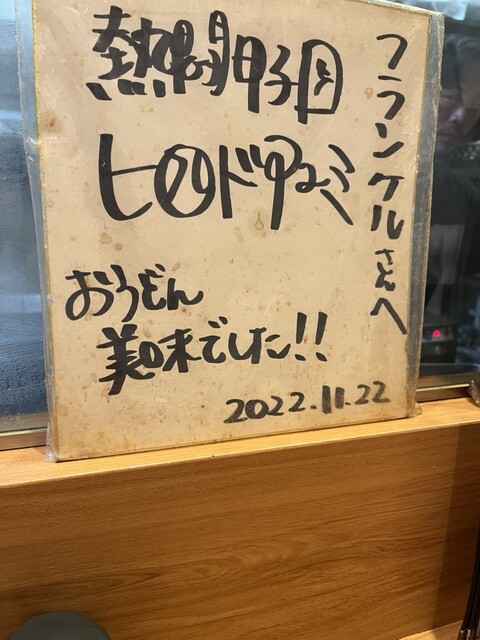 フランケルさんへ
熱闘甲子園
ヒロド
おうどん
美味でした!!
2022.11.22